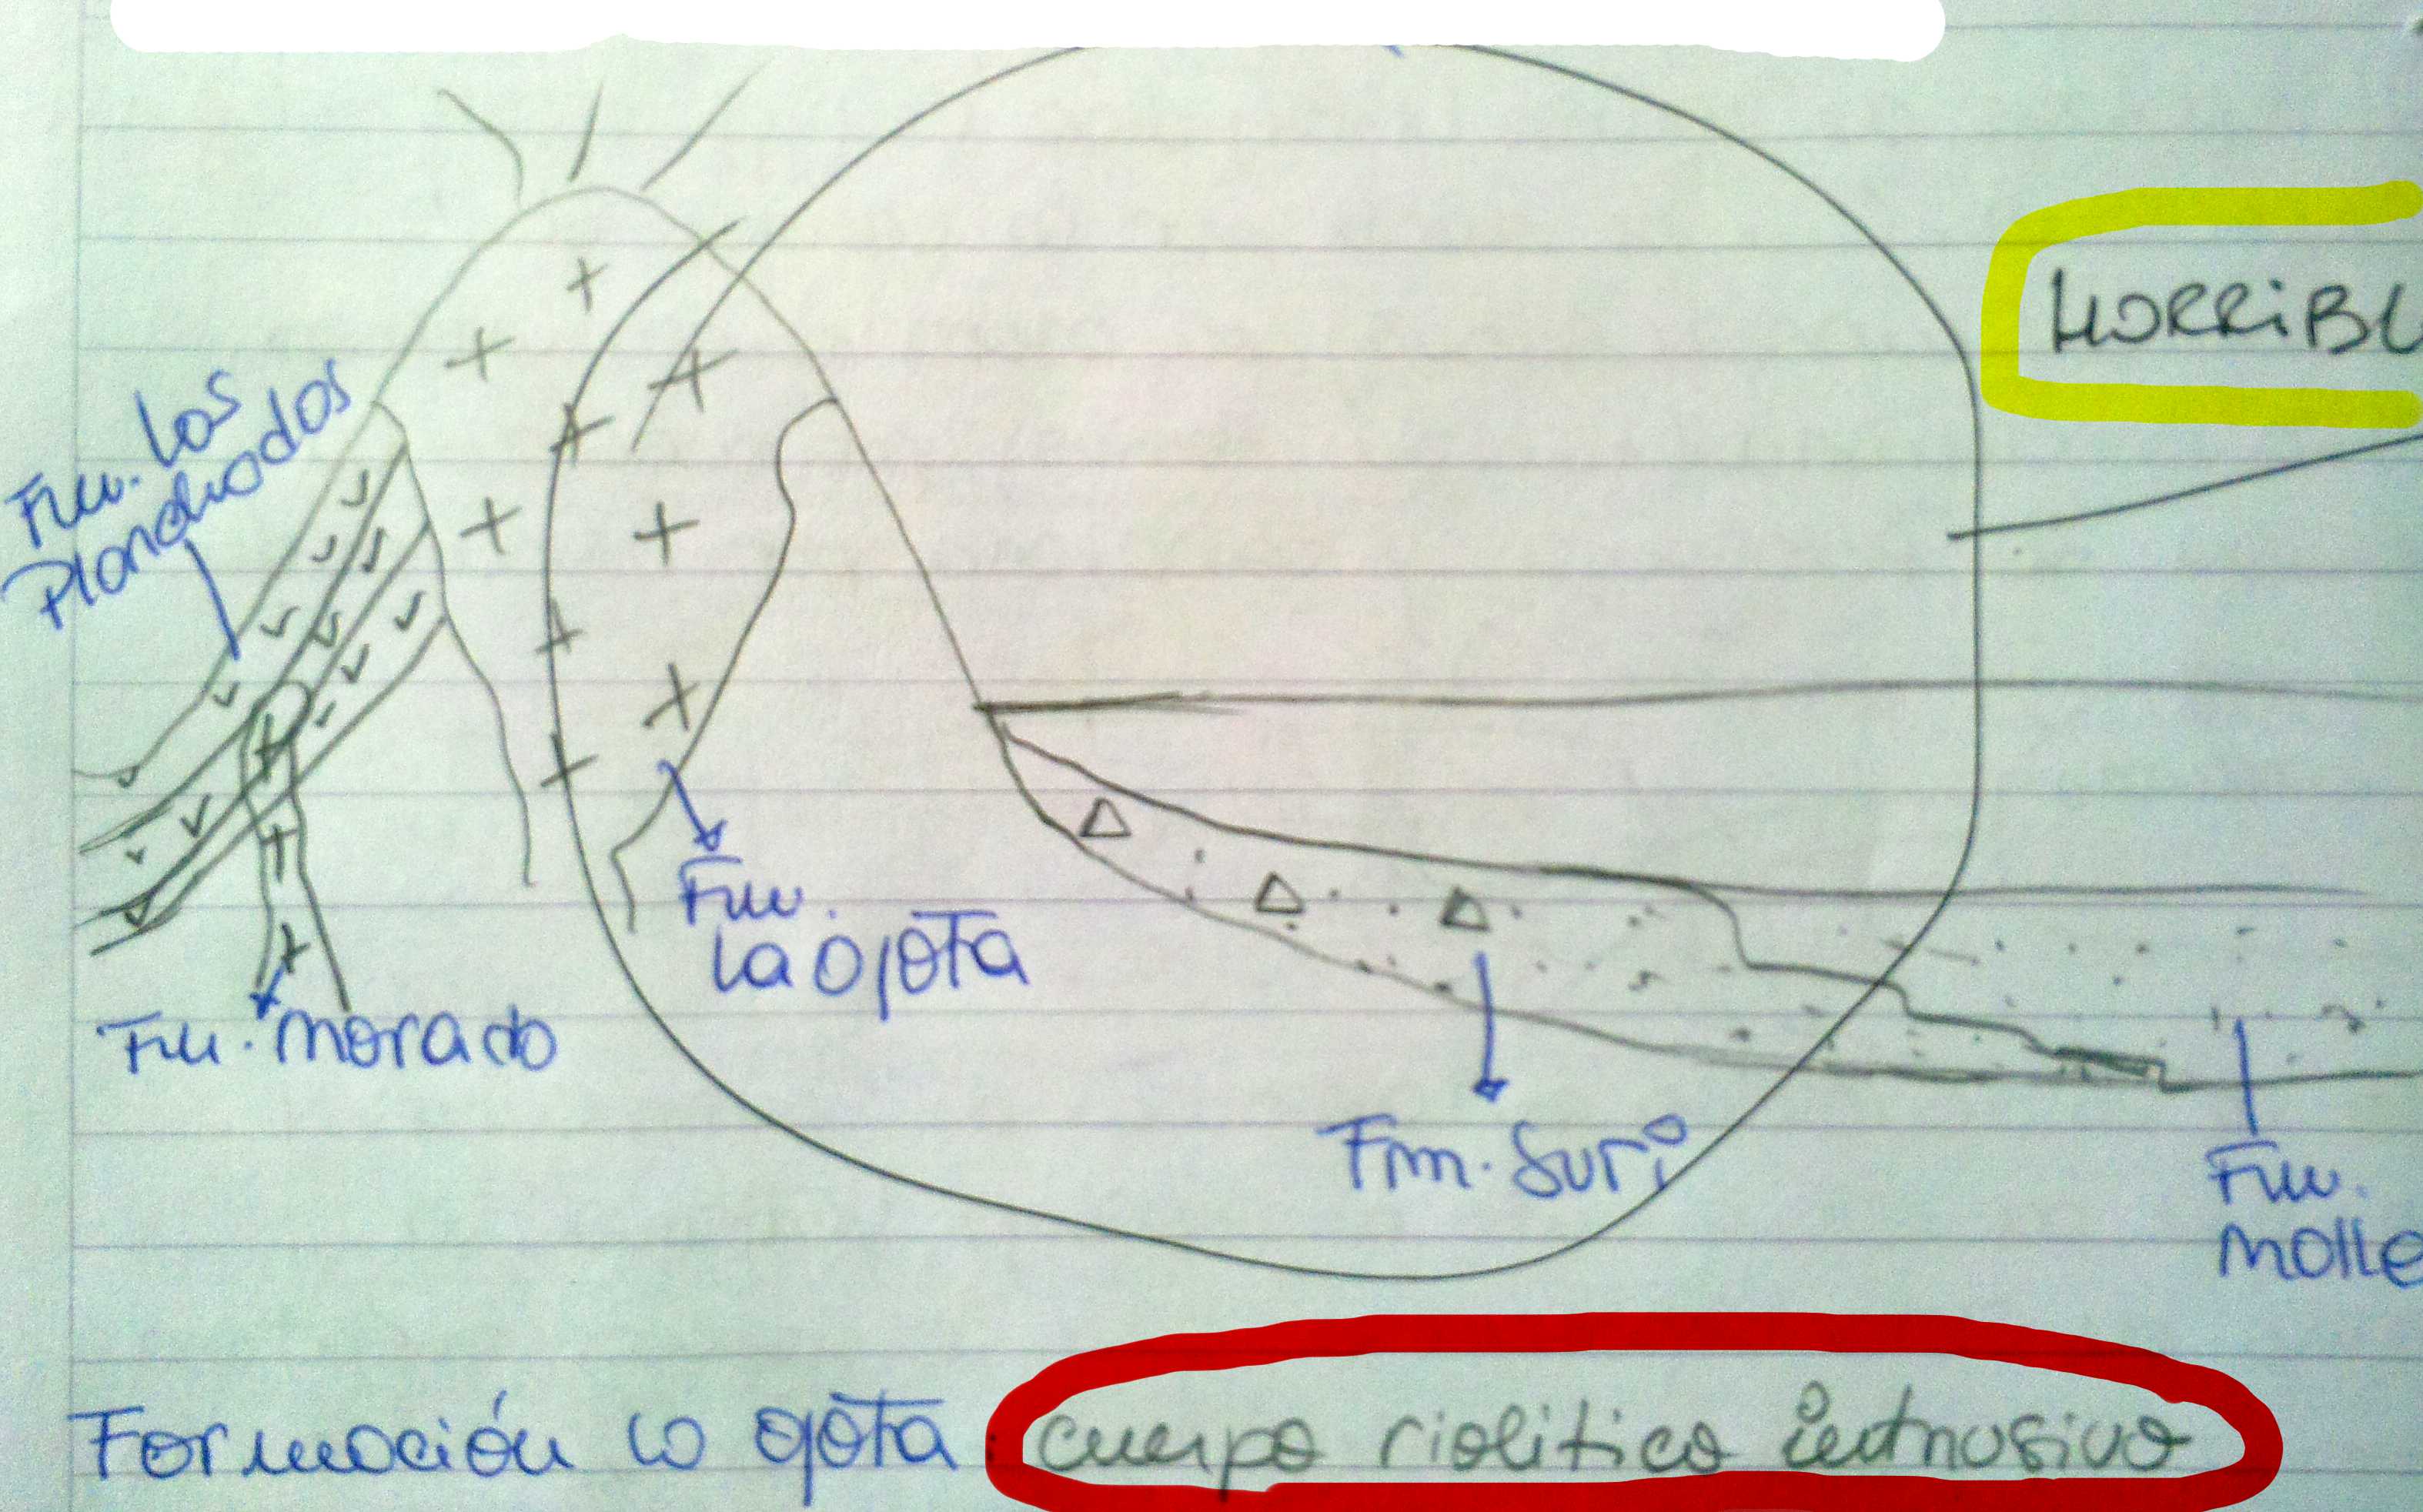 HORRIBL
Fm. Los
Planchodos
Fm.
La Ojota
Fm. Morado
Fm. Suri
Fm.
Molle
Formación la ojota: cuerpo riolitico intrusivo